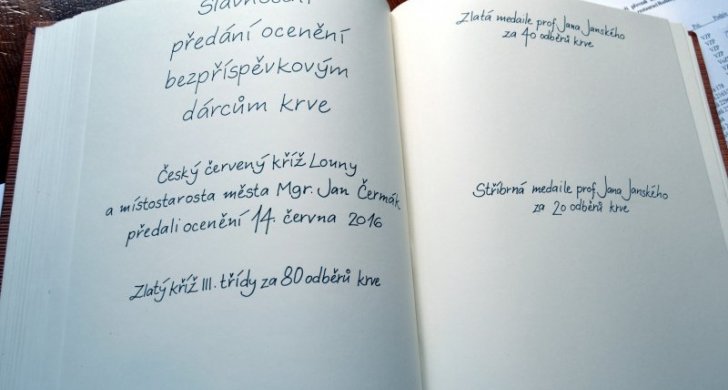 Slavnostní
předání ocenění
bezpříspěvkovým
dárcům krve
Český červený kříž Louny
a místostarosta města Mgr. Jan Čermák
předali ocenění 14. června 2016
Zlatý kříž III. třídy za 80 odběrů krve
Zlatá medaile prof. Jana Janského
za 40 odběrů krve
Stříbrná medaile prof. Jana Janského
za 20 odběrů krve